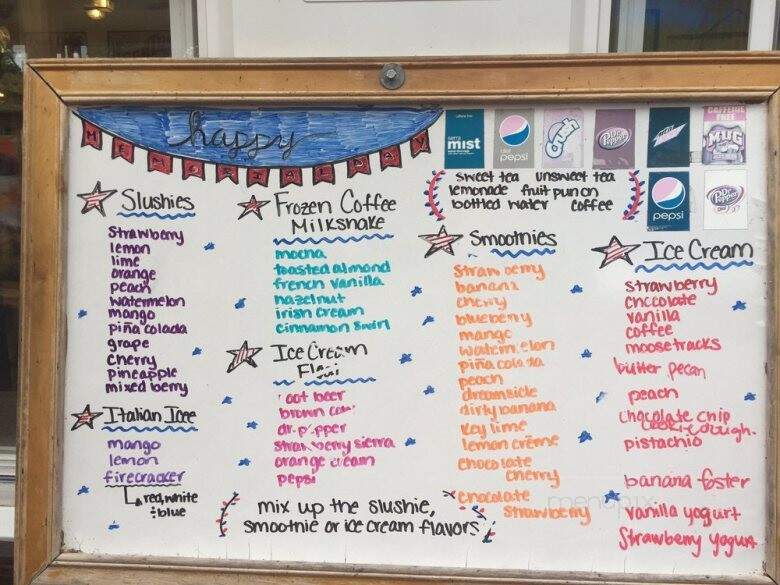 happy
MEMORIAL DAY
sierra mist
pepsi
Crush
Dr Pepper
CAFFEINE FREE
MUG
pepsi
Dr Pepper
sweet tea unsweet tea
lemonade fruit punch
bottled water coffee
Slushies
strawberry
lemon
lime
orange
peach
watermelon
mango
piña colada
grape
cherry
pineapple
mixed berry
Italian Ice
mango
lemon
firecracker
red, white
& blue
Frozen Coffee
Milkshake
mocha
toasted almond
french vanilla
hazelnut
irish cream
cinnamon swirl
Ice Cream
root beer
brown
dr. pepper
strawberry sierra
orange cream
pepsi
mix up the slushie,
smoothie or ice cream flavors
Smoothies
strawberry
banana
cherry
blueberry
mango
watermelon
piña colada
peach
dreamsicle
dirty banana
key lime
lemon crème
chocolate
cherry
chocolate
strawberry
Ice Cream
strawberry
chocolate
vanilla
coffee
moosetracks
butter pecan
peach
chocolate chip
cookie dough.
pistachio
banana foster
vanilla yogurt
Strawberry yogurt
menupix